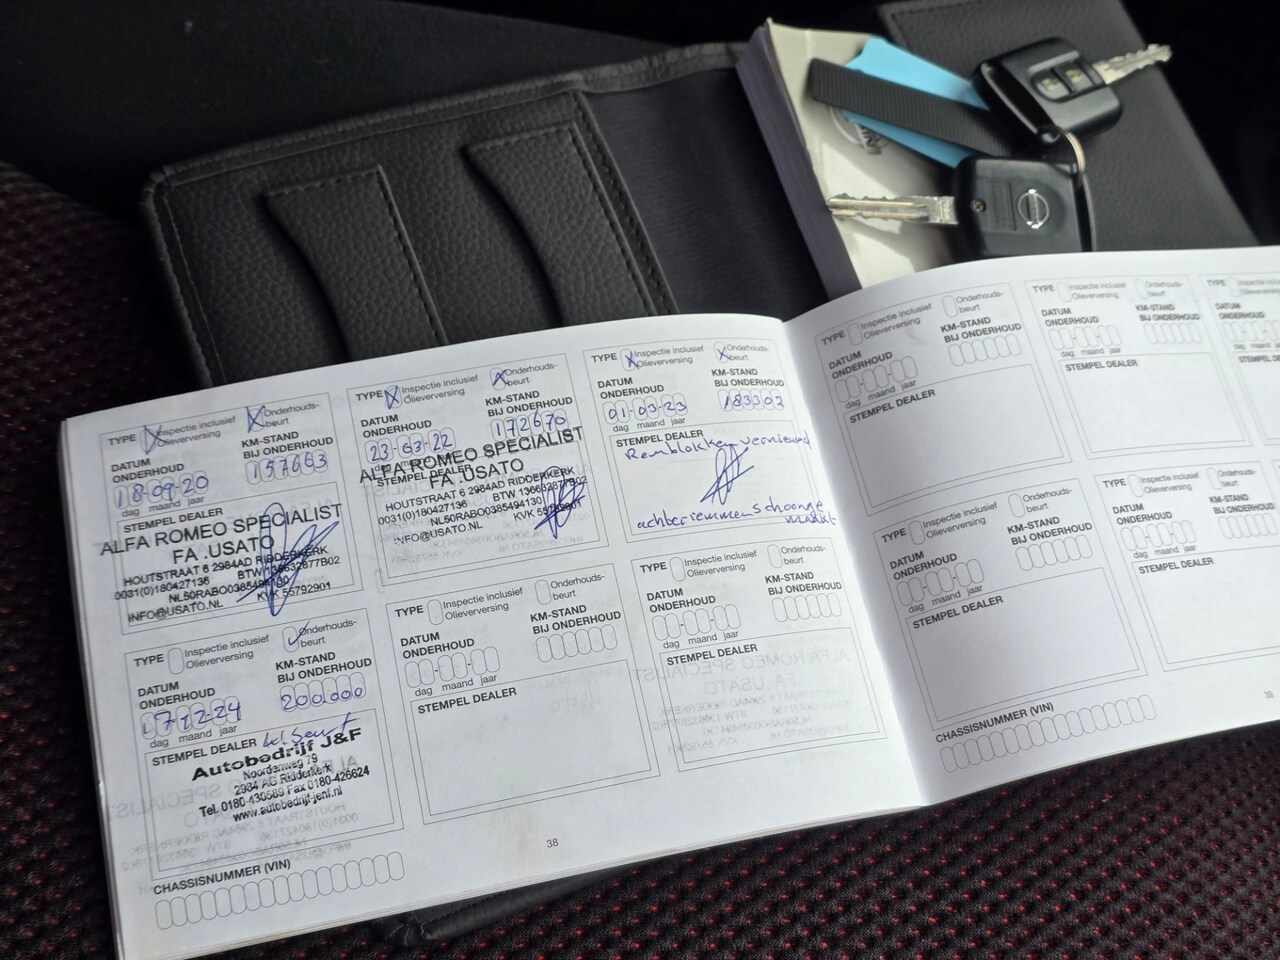 TYPE Inspectie inclusief Olieverversing Onderhouds-beurt
DATUM ONDERHOUD
KM-STAND BIJ ONDERHOUD
18-09-20
157663
dag maand jaar
STEMPEL DEALER
ALFA ROMEO SPECIALIST
FA .USATO
HOUTSTRAAT 6 2984AD RIDDERKERK
0031(0)180427136 BTW 136632877B02
NL50RABO0385494130
INFO@USATO.NL KVK 55792901
TYPE Inspectie inclusief Olieverversing Onderhouds-beurt
DATUM ONDERHOUD
KM-STAND BIJ ONDERHOUD
23-03-22
172670
dag maand jaar
STEMPEL DEALER
ALFA ROMEO SPECIALIST
FA .USATO
HOUTSTRAAT 6 2984AD RIDDERKERK
0031(0)180427136 BTW 136632877B02
NL50RABO0385494130
INFO@USATO.NL KVK 55792901
TYPE Inspectie inclusief Olieverversing Onderhouds-beurt
DATUM ONDERHOUD
KM-STAND BIJ ONDERHOUD
01-03-23
183302
dag maand jaar
STEMPEL DEALER
Remblokken vernieuwd
TYPE Inspectie inclusief Olieverversing Onderhouds-beurt
DATUM ONDERHOUD
KM-STAND BIJ ONDERHOUD
17-12-24
200.000
dag maand jaar
STEMPEL DEALER
Autobedrijf J&F
Noordenweg 79
2984 AG Ridderkerk
Tel. 0180-430589 Fax 0180-426624
www.autobedrijf-jenf.nl
TYPE Inspectie inclusief Olieverversing Onderhouds-beurt
DATUM ONDERHOUD
KM-STAND BIJ ONDERHOUD
dag maand jaar
STEMPEL DEALER
TYPE Inspectie inclusief Olieverversing Onderhouds-beurt
DATUM ONDERHOUD
KM-STAND BIJ ONDERHOUD
dag maand jaar
STEMPEL DEALER
CHASSISNUMMER (VIN)
38
TYPE Inspectie inclusief Olieverversing Onderhouds-beurt
DATUM ONDERHOUD
KM-STAND BIJ ONDERHOUD
dag maand jaar
STEMPEL DEALER
TYPE Inspectie inclusief Olieverversing Onderhouds-beurt
DATUM ONDERHOUD
KM-STAND BIJ ONDERHOUD
dag maand jaar
STEMPEL DEALER
TYPE Inspectie inclusief Olieverversing
DATUM ONDERHOUD
dag maand
TYPE Inspectie inclusief Olieverversing Onderhouds-beurt
DATUM ONDERHOUD
KM-STAND BIJ ONDERHOUD
dag maand jaar
STEMPEL DEALER
TYPE Inspectie inclusief Olieverversing Onderhouds-beurt
DATUM ONDERHOUD
KM-STAND BIJ ONDERHOUD
dag maand jaar
STEMPEL DEALER
CHASSISNUMMER (VIN)
39
NISSAN